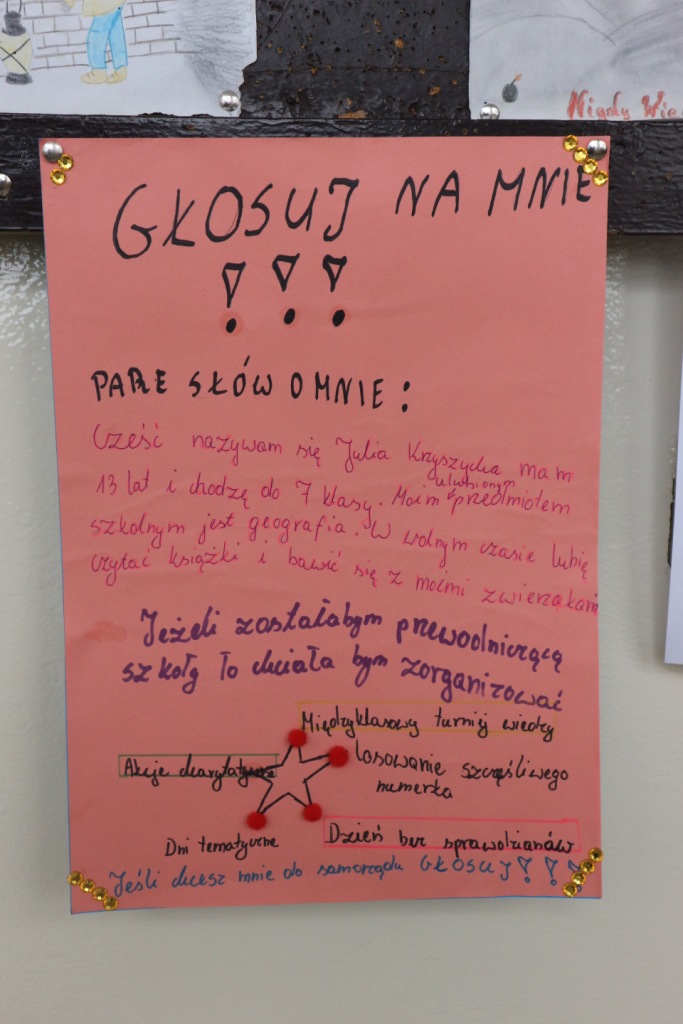 Nigdy Wię
GŁOSUJ NA MNIE
!!!
PARE SŁÓW O MNIE:
Cześć nazywam się Julia Krzyszycha mam
13 lat i chodzę do 7 klasy. Moim ulubionym przedmiotem
szkolnym jest geografia. W wolnym czasie lubię
czytać książki i bawić się z moimi zwierzakami
Jeżeli zostałabym przewodniczącą
szkoły to chciała bym zorganizować
Międzyklasowy turniej wiedzy
Losowanie szczęśliwego
numerka
Akcje charytatywne
Dzień bez sprawdzianów
Dni tematyczne
Jeśli chcesz mnie do samorządu GŁOSUJ!!!